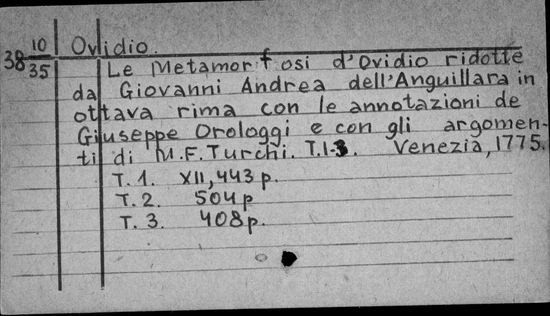 38 10/35 Ovidio.
Le Metamorfosi d'Ovidio ridotte
da Giovanni Andrea dell'Anguillara in
ottava rima con le annotazioni de
Giuseppe Orologgi e con gli argomen-
ti di M.F. Turchi. T.1-3. Venezia, 1775.
T. 1. XII, 443 p.
T. 2. 504 p
T. 3. 408 p.